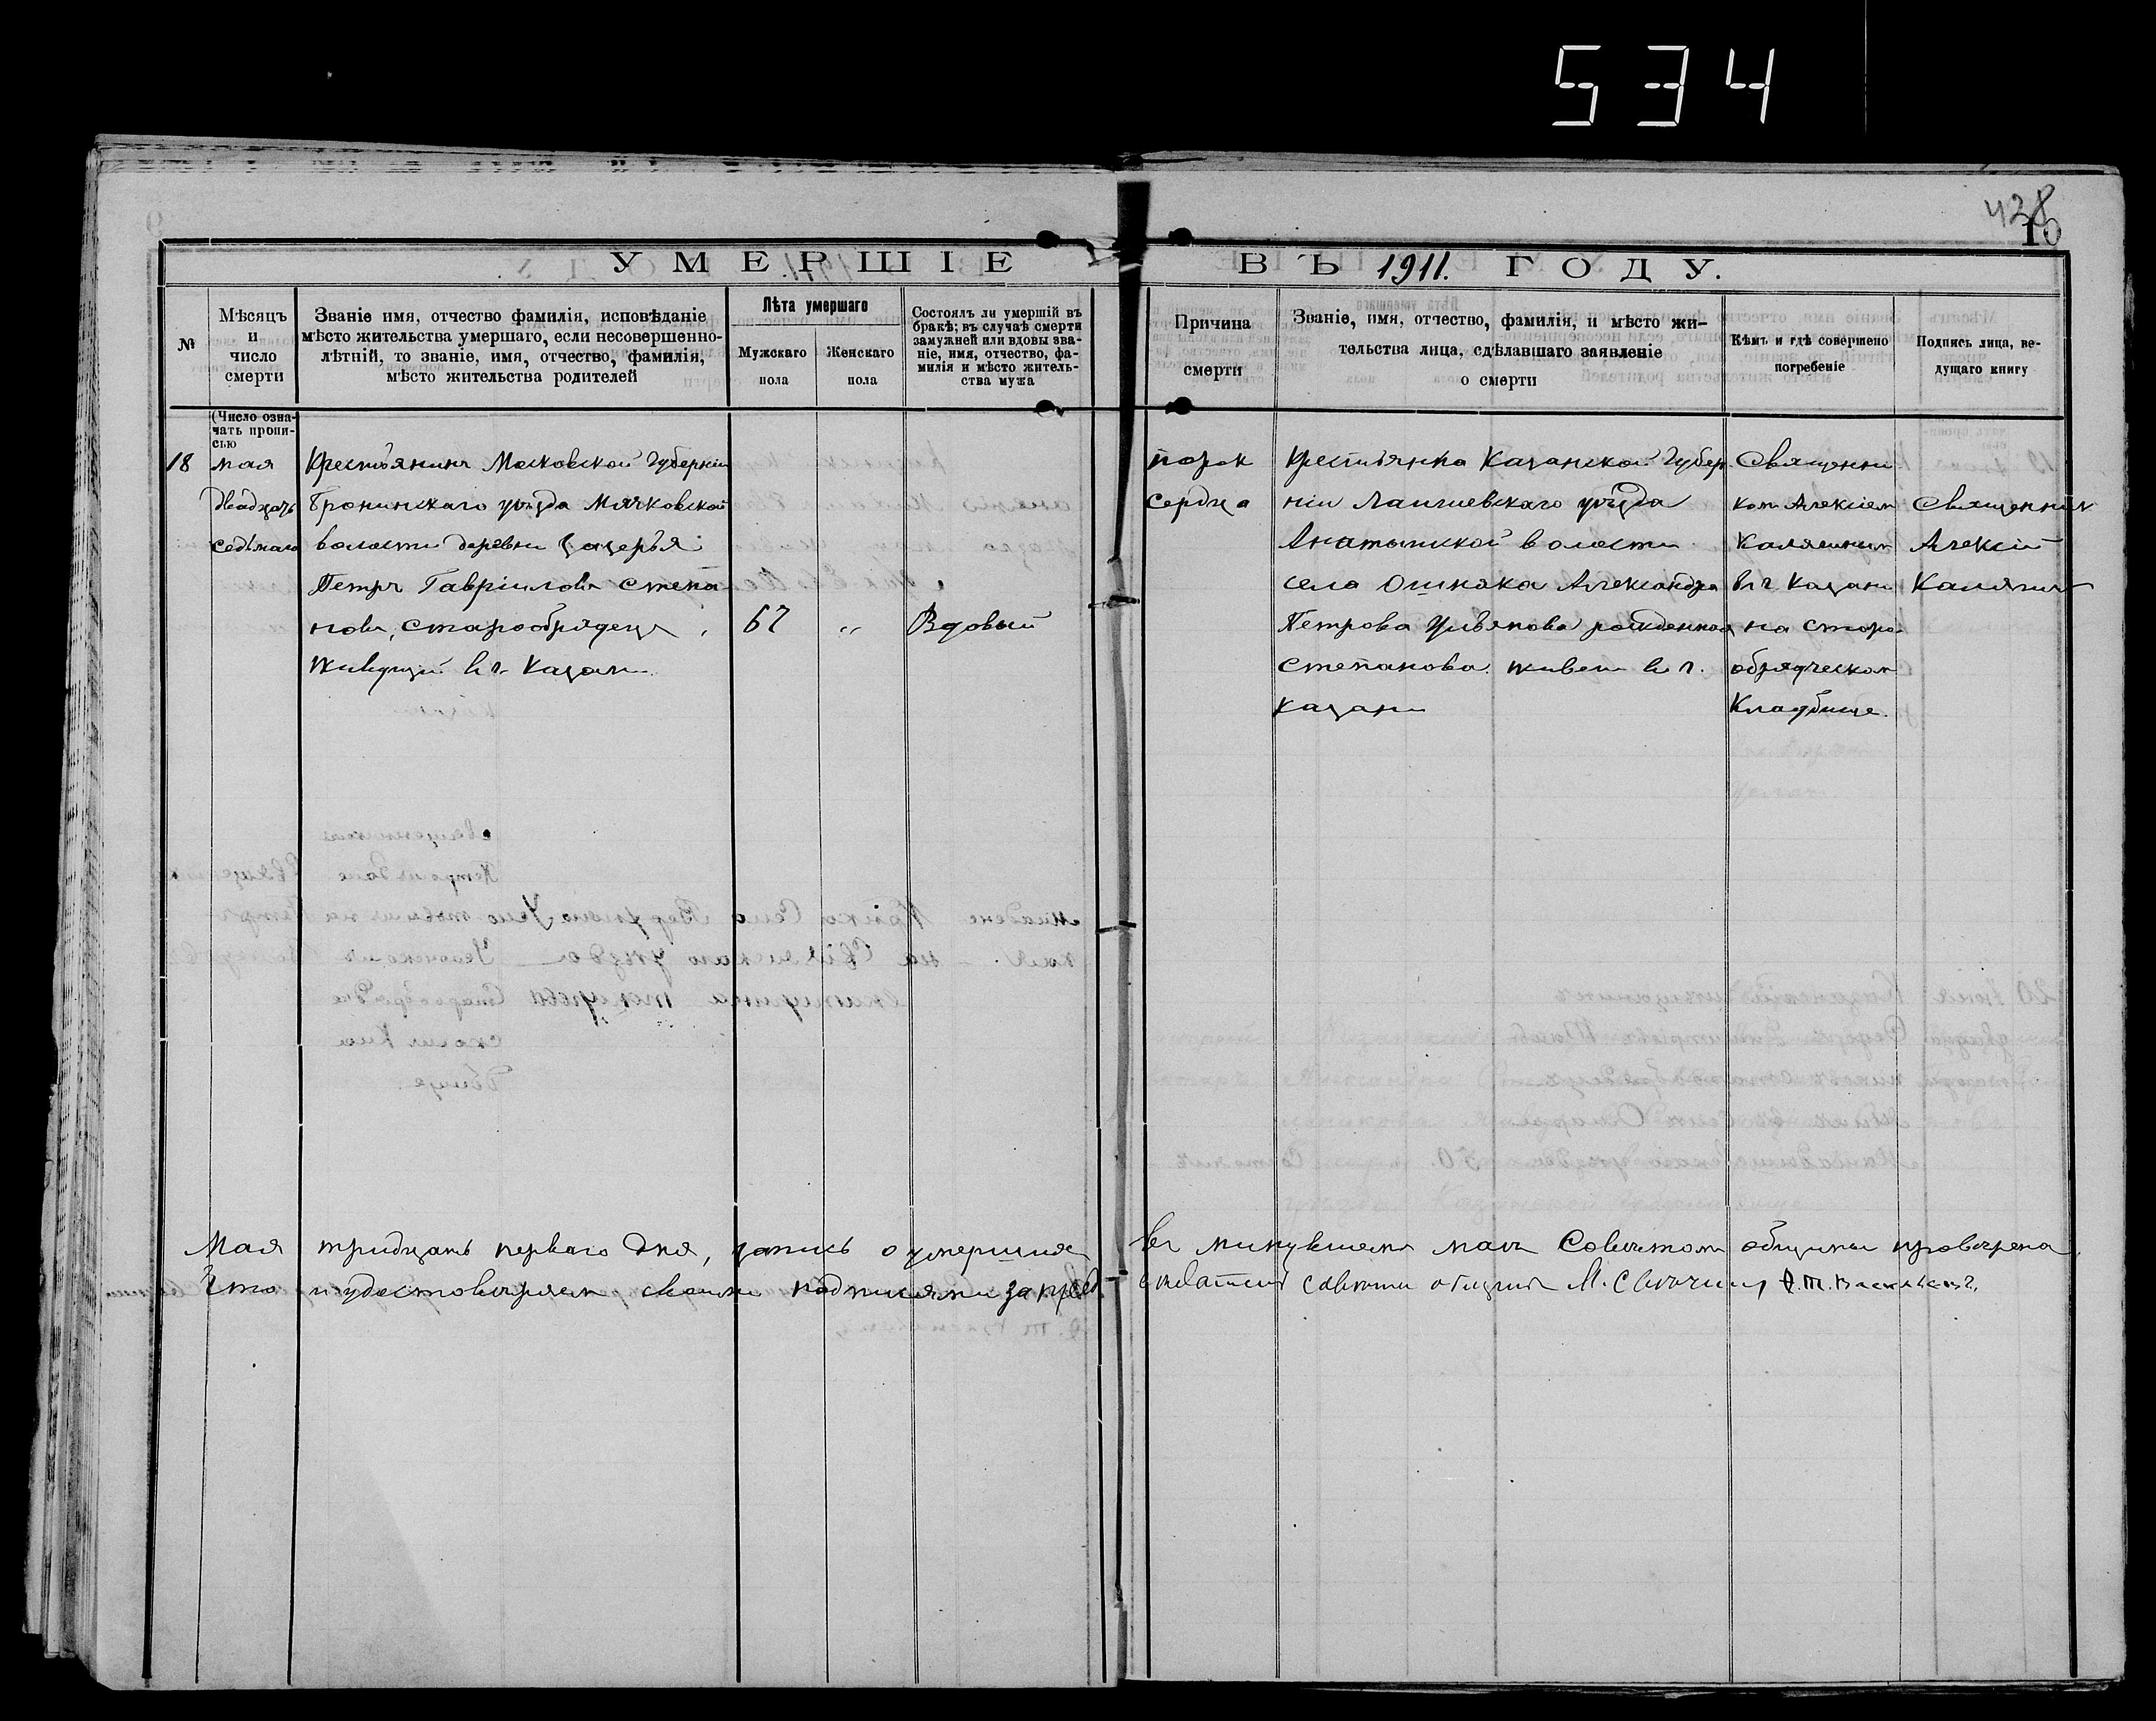 534
428
10
УМЕРШІЕ ВЪ 1911. ГОДУ.
№
Мѣсяцъ
и
число
смерти
Званіе имя, отчество фамилія, исповѣданіе
мѣсто жительства умершаго, если несовершенно-
лѣтній, то званіе, имя, отчество, фамилія,
мѣсто жительства родителей
Лѣта умершаго
Мужскаго
пола
Женскаго
пола
Состоялъ ли умершій въ
бракѣ; въ случаѣ смерти
замужней или вдовы зва-
ніе, имя, отчество, фа-
милія и мѣсто житель-
ства мужа
Причина
смерти
Званіе, имя, отчество, фамилія, и мѣсто жи-
тельства лица, сдѣлавшаго заявленіе
о смерти
Кѣмъ и гдѣ совершено
погребеніе
Подпись лица, ве-
дущаго книгу
(Число озна-
чать пропи-
сью
18
мая
двадцать
седьмаго
Крестьянинъ Московской Губерніи
Бронинскаго уѣзда Мячковской
волости деревни Зазерья
Петръ Гавріиловъ Степа-
новъ, старообрядецъ,
живущій въ г. Казани
67
"
Вдовый
порок
сердца
Крестьянка Казанской Губер
ніи Лаишевскаго уѣзда
волости
села Ошняка Александра
Петрова рожденная
Степанова. живет въ г.
Казани
Священни
ком Алексіем
Калягиным
въ г. Казани
на старо
обрядческом
Кладбище.
Священник
Алексій
Калягин
Мая тридцать перваго дня, запись о умерших въ минувшем маѣ Советом общины проверена
Что и удостоверяем своими подписями за пред советом общины М. Ф. Т.